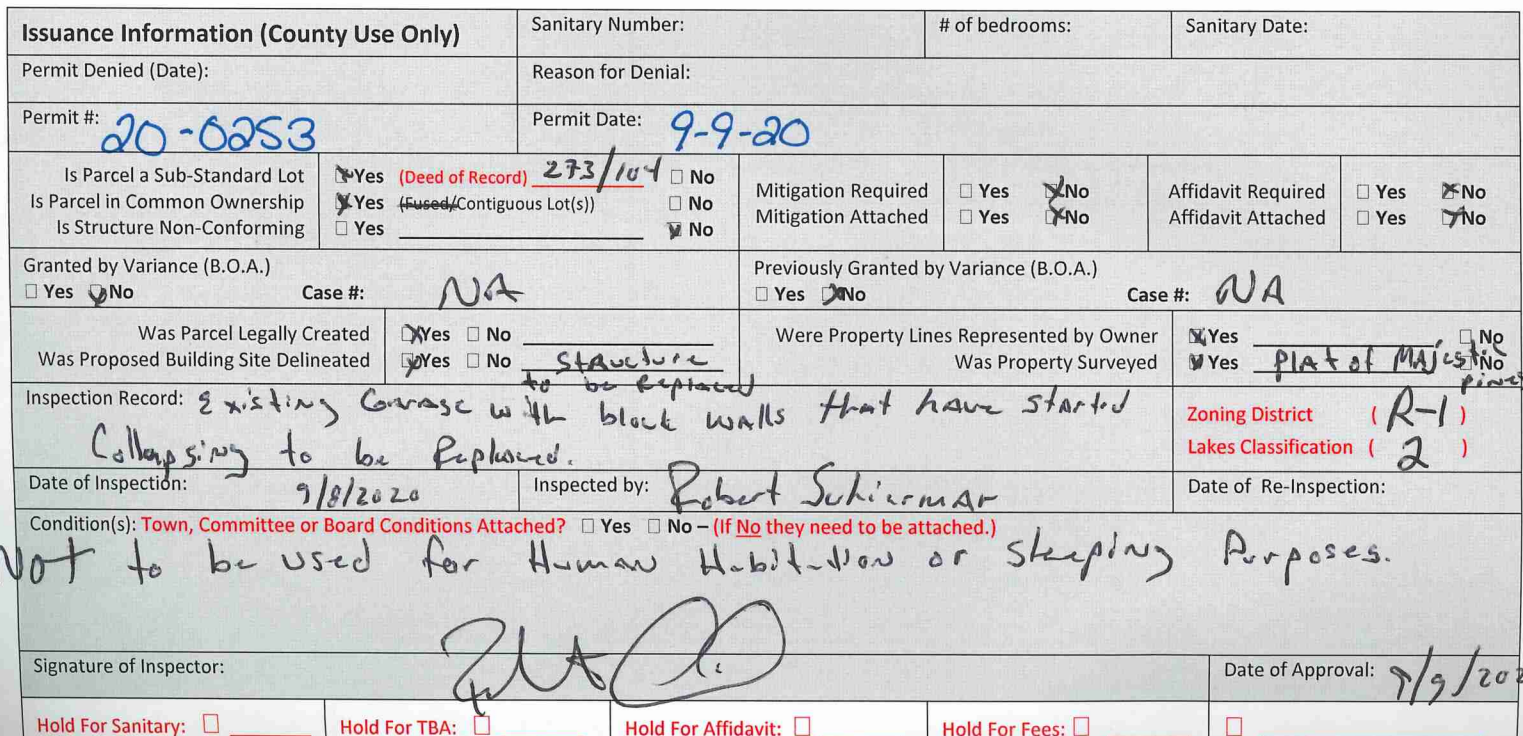 Issuance Information (County Use Only) Sanitary Number: # of bedrooms: Sanitary Date:
Permit Denied (Date): Reason for Denial:
Permit #: 20-0253 Permit Date: 9-9-20
Is Parcel a Sub-Standard Lot ☒ Yes (Deed of Record) 273/104 □ No
Is Parcel in Common Ownership ☒ Yes (Fused/Contiguous Lot(s)) □ No
Is Structure Non-Conforming □ Yes ☒ No
Mitigation Required □ Yes ☒ No
Mitigation Attached □ Yes ☒ No
Affidavit Required □ Yes ☒ No
Affidavit Attached □ Yes ☒ No
Granted by Variance (B.O.A.)
□ Yes ☒ No Case #: NA
Previously Granted by Variance (B.O.A.)
□ Yes ☒ No Case #: NA
Was Parcel Legally Created ☒ Yes □ No
Was Proposed Building Site Delineated ☒ Yes □ No Structure
to be Replaced
Were Property Lines Represented by Owner ☒ Yes □ No
Was Property Surveyed ☒ Yes Plat of Majestic □ No
pines
Inspection Record: Existing Garage with block walls that have started
Collapsing to be Replaced.
Zoning District ( R-1 )
Lakes Classification ( 2 )
Date of Inspection: 9/8/2020 Inspected by: Robert Schierman Date of Re-Inspection:
Condition(s): Town, Committee or Board Conditions Attached? □ Yes □ No – (If No they need to be attached.)
Not to be used for Human Habitation or sleeping Purposes.
Signature of Inspector: Date of Approval: 9/9/202
Hold For Sanitary: □ Hold For TBA: □ Hold For Affidavit: □ Hold For Fees: □ □